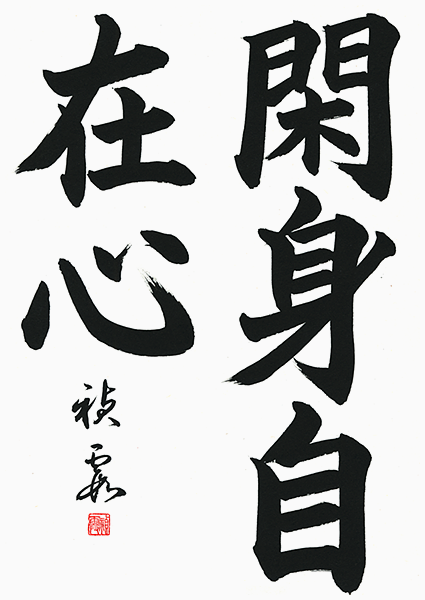 閑身自
在心
禎霞